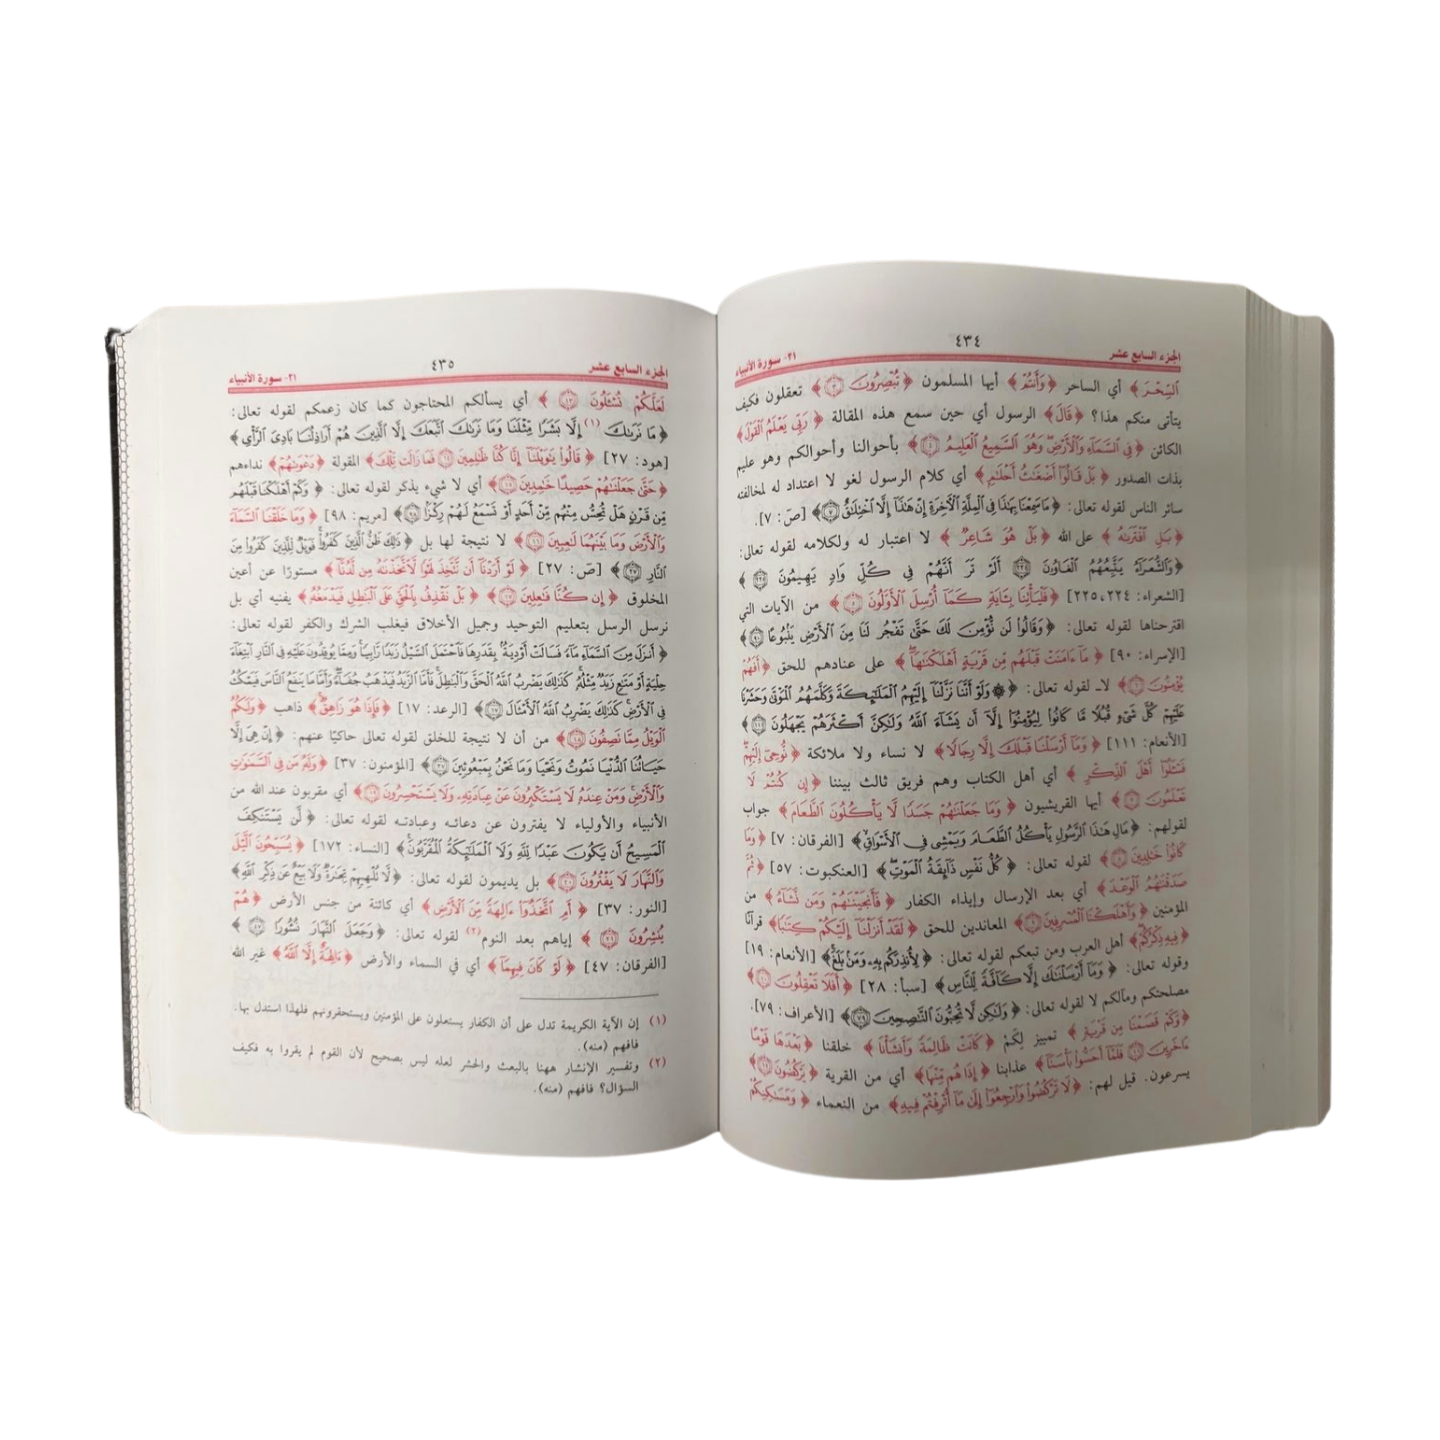 الجزء السابع عشر
٤٣٤
٢١- سورة الأنبياء
ٱلسِّحْرَ﴾ أي الساحر ﴿وَأَنتُمْ﴾ أيها المسلمون ﴿تُبْصِرُونَ ﴿٣﴾﴾ تعقلون فكيف
يتأتى منكم هذا؟ ﴿قَالَ﴾ الرسول أي حين سمع هذه المقالة ﴿رَبِّى يَعْلَمُ ٱلْقَوْلَ﴾
الكائن ﴿فِى ٱلسَّمَآءِ وَٱلْأَرْضِ وَهُوَ ٱلسَّمِيعُ ٱلْعَلِيمُ ﴿٤﴾﴾ بأحوالنا وأحوالكم وهو عليم
بذات الصدور ﴿بَلْ قَالُوٓا۟ أَضْغَٰثُ أَحْلَٰمٍ﴾ أي كلام الرسول لغو لا اعتداد له لمخالفته
سائر الناس لقوله تعالى: ﴿مَا سَمِعْنَا بِهَٰذَا فِى ٱلْمِلَّةِ ٱلْءَاخِرَةِ إِنْ هَٰذَآ إِلَّا ٱخْتِلَٰقٌ ﴿٧﴾﴾ [صَ: ٧].
﴿بَلِ ٱفْتَرَىٰهُ﴾ على الله ﴿بَلْ هُوَ شَاعِرٌ﴾ لا اعتبار له ولكلامه لقوله تعالى:
﴿وَٱلشُّعَرَآءُ يَتَّبِعُهُمُ ٱلْغَاوُۥنَ ﴿٢٢٤﴾ أَلَمْ تَرَ أَنَّهُمْ فِى كُلِّ وَادٍ يَهِيمُونَ ﴿٢٢٥﴾﴾
[الشعراء: ٢٢٤، ٢٢٥] ﴿فَلْيَأْتِنَا بِـَٔايَةٍ كَمَآ أُرْسِلَ ٱلْأَوَّلُونَ ﴿٥﴾﴾ من الآيات التي
اقترحناها لقوله تعالى: ﴿وَقَالُوا۟ لَن نُّؤْمِنَ لَكَ حَتَّىٰ تَفْجُرَ لَنَا مِنَ ٱلْأَرْضِ يَنۢبُوعًا ﴿٩٠﴾﴾
[الإسراء: ٩٠] ﴿مَآ ءَامَنَتْ قَبْلَهُم مِّن قَرْيَةٍ أَهْلَكْنَٰهَآ﴾ على عنادهم للحق ﴿أَفَهُمْ
يُؤْمِنُونَ ﴿٦﴾﴾ لا۔ لقوله تعالى: ﴿۞ وَلَوْ أَنَّنَا نَزَّلْنَآ إِلَيْهِمُ ٱلْمَلَٰٓئِكَةَ وَكَلَّمَهُمُ ٱلْمَوْتَىٰ وَحَشَرْنَا
عَلَيْهِمْ كُلَّ شَىْءٍ قُبُلًا مَّا كَانُوا۟ لِيُؤْمِنُوٓا۟ إِلَّآ أَن يَشَآءَ ٱللَّهُ وَلَٰكِنَّ أَكْثَرَهُمْ يَجْهَلُونَ ﴿١١١﴾﴾
[الأنعام: ١١١] ﴿وَمَآ أَرْسَلْنَا قَبْلَكَ إِلَّا رِجَالًا﴾ لا نساء ولا ملائكة ﴿نُّوحِىٓ إِلَيْهِمْ
فَسْـَٔلُوٓا۟ أَهْلَ ٱلذِّكْرِ﴾ أي أهل الكتاب وهم فريق ثالث بيننا ﴿إِن كُنتُمْ لَا
تَعْلَمُونَ ﴿٧﴾﴾ أيها القريشيون ﴿وَمَا جَعَلْنَٰهُمْ جَسَدًا لَّا يَأْكُلُونَ ٱلطَّعَامَ﴾ جواب
لقولهم: ﴿مَالِ هَٰذَا ٱلرَّسُولِ يَأْكُلُ ٱلطَّعَامَ وَيَمْشِى فِى ٱلْأَسْوَاقِ﴾ [الفرقان: ٧] ﴿وَمَا
كَانُوا۟ خَٰلِدِينَ ﴿٨﴾﴾ لقوله تعالى: ﴿كُلُّ نَفْسٍ ذَآئِقَةُ ٱلْمَوْتِ﴾ [العنكبوت: ٥٧] ﴿ثُمَّ
صَدَقْنَٰهُمُ ٱلْوَعْدَ﴾ أي بعد الإرسال وإيذاء الكفار ﴿فَأَنجَيْنَٰهُمْ وَمَن نَّشَآءُ﴾ من
المؤمنين ﴿وَأَهْلَكْنَا ٱلْمُسْرِفِينَ ﴿٩﴾﴾ المعاندين للحق ﴿لَقَدْ أَنزَلْنَآ إِلَيْكُمْ كِتَٰبًا﴾ قرآنًا
﴿فِيهِ ذِكْرُكُمْ﴾ أهل العرب ومن تبعكم لقوله تعالى: ﴿لِأُنذِرَكُم بِهِۦ وَمَنۢ بَلَغَ﴾ [الأنعام: ١٩]
وقوله تعالى: ﴿وَمَآ أَرْسَلْنَٰكَ إِلَّا كَآفَّةً لِّلنَّاسِ﴾ [سبأ: ٢٨] ﴿أَفَلَا تَعْقِلُونَ ﴿١٠﴾﴾
مصلحتكم ومآلكم لا لقوله تعالى: ﴿وَلَٰكِن لَّا تُحِبُّونَ ٱلنَّٰصِحِينَ ﴿٧٩﴾﴾ [الأعراف: ٧٩].
﴿وَكَمْ قَصَمْنَا مِن قَرْيَةٍ﴾ تمييز لِكَمْ ﴿كَانَتْ ظَالِمَةً وَأَنشَأْنَا﴾ خلقنا ﴿بَعْدَهَا قَوْمًا
ءَاخَرِينَ ﴿١١﴾ فَلَمَّآ أَحَسُّوا۟ بَأْسَنَآ﴾ عذابنا ﴿إِذَا هُم مِّنْهَا﴾ أي من القرية ﴿يَرْكُضُونَ ﴿١٢﴾﴾
يسرعون. قيل لهم: ﴿لَا تَرْكُضُوا۟ وَٱرْجِعُوٓا۟ إِلَىٰ مَآ أُتْرِفْتُمْ فِيهِ﴾ من النعماء ﴿وَمَسَٰكِنِكُمْ
الجزء السابع عشر
٤٣٥
٢١- سورة الأنبياء
لَعَلَّكُمْ تُسْـَٔلُونَ ﴿١٣﴾﴾ أي يسألكم المحتاجون كما كان زعمكم لقوله تعالى:
﴿مَا نَرَىٰكَ (١) إِلَّا بَشَرًا مِّثْلَنَا وَمَا نَرَىٰكَ ٱتَّبَعَكَ إِلَّا ٱلَّذِينَ هُمْ أَرَاذِلُنَا بَادِىَ ٱلرَّأْىِ﴾
[هود: ٢٧] ﴿قَالُوا۟ يَٰوَيْلَنَآ إِنَّا كُنَّا ظَٰلِمِينَ ﴿١٤﴾ فَمَا زَالَت تِّلْكَ﴾ المقولة ﴿دَعْوَىٰهُمْ﴾ نداءهم
﴿حَتَّىٰ جَعَلْنَٰهُمْ حَصِيدًا خَٰمِدِينَ ﴿١٥﴾﴾ أي لا شيء يذكر لقوله تعالى: ﴿وَكَمْ أَهْلَكْنَا قَبْلَهُم
مِّن قَرْنٍ هَلْ تُحِسُّ مِنْهُم مِّنْ أَحَدٍ أَوْ تَسْمَعُ لَهُمْ رِكْزًۢا ﴿٩٨﴾﴾ [مريم: ٩٨] ﴿وَمَا خَلَقْنَا ٱلسَّمَآءَ
وَٱلْأَرْضَ وَمَا بَيْنَهُمَا لَٰعِبِينَ ﴿١٦﴾﴾ لا نتيجة لها بل ﴿ذَٰلِكَ ظَنُّ ٱلَّذِينَ كَفَرُوا۟ فَوَيْلٌ لِّلَّذِينَ كَفَرُوا۟ مِنَ
ٱلنَّارِ ﴿٢٧﴾﴾ [صَ: ٢٧] ﴿لَوْ أَرَدْنَآ أَن نَّتَّخِذَ لَهْوًا لَّٱتَّخَذْنَٰهُ مِن لَّدُنَّآ﴾ مستورًا عن أعين
المخلوق ﴿إِن كُنَّا فَٰعِلِينَ ﴿١٧﴾﴾ ﴿بَلْ نَقْذِفُ بِٱلْحَقِّ عَلَى ٱلْبَٰطِلِ فَيَدْمَغُهُۥ﴾ يفنيه أي بل
نرسل الرسل بتعليم التوحيد وجميل الأخلاق فيغلب الشرك والكفر لقوله تعالى:
﴿أَنزَلَ مِنَ ٱلسَّمَآءِ مَآءً فَسَالَتْ أَوْدِيَةٌۢ بِقَدَرِهَا فَٱحْتَمَلَ ٱلسَّيْلُ زَبَدًا رَّابِيًا وَمِمَّا يُوقِدُونَ عَلَيْهِ فِى ٱلنَّارِ ٱبْتِغَآءَ
حِلْيَةٍ أَوْ مَتَٰعٍ زَبَدٌ مِّثْلُهُۥ كَذَٰلِكَ يَضْرِبُ ٱللَّهُ ٱلْحَقَّ وَٱلْبَٰطِلَ فَأَمَّا ٱلزَّبَدُ فَيَذْهَبُ جُفَآءً وَأَمَّا مَا يَنفَعُ ٱلنَّاسَ فَيَمْكُثُ
فِى ٱلْأَرْضِ كَذَٰلِكَ يَضْرِبُ ٱللَّهُ ٱلْأَمْثَالَ ﴿١٧﴾﴾ [الرعد: ١٧] ﴿فَإِذَا هُوَ زَاهِقٌ﴾ ذاهب ﴿وَلَكُمُ
ٱلْوَيْلُ مِمَّا تَصِفُونَ ﴿١٨﴾﴾ من أن لا نتيجة للخلق لقوله تعالى حاكيًا عنهم: ﴿إِنْ هِىَ إِلَّا
حَيَاتُنَا ٱلدُّنْيَا نَمُوتُ وَنَحْيَا وَمَا نَحْنُ بِمَبْعُوثِينَ ﴿٣٧﴾﴾ [المؤمنون: ٣٧] ﴿وَلَهُۥ مَن فِى ٱلسَّمَٰوَٰتِ
وَٱلْأَرْضِ وَمَنْ عِندَهُۥ لَا يَسْتَكْبِرُونَ عَنْ عِبَادَتِهِۦ وَلَا يَسْتَحْسِرُونَ ﴿١٩﴾﴾ أي مقربون عند الله من
الأنبياء والأولياء لا يفترون عن دعائه وعبادته لقوله تعالى: ﴿لَّن يَسْتَنكِفَ
ٱلْمَسِيحُ أَن يَكُونَ عَبْدًا لِّلَّهِ وَلَا ٱلْمَلَٰٓئِكَةُ ٱلْمُقَرَّبُونَ﴾ [النساء: ١٧٢] ﴿يُسَبِّحُونَ ٱلَّيْلَ
وَٱلنَّهَارَ لَا يَفْتُرُونَ ﴿٢٠﴾﴾ بل يديمون لقوله تعالى: ﴿لَّا تُلْهِيهِمْ تِجَٰرَةٌ وَلَا بَيْعٌ عَن ذِكْرِ ٱللَّهِ﴾
[النور: ٣٧] ﴿أَمِ ٱتَّخَذُوٓا۟ ءَالِهَةً مِّنَ ٱلْأَرْضِ﴾ أي كائنة من جنس الأرض ﴿هُمْ
يُنشِرُونَ ﴿٢١﴾﴾ إياهم بعد النوم(٢) لقوله تعالى: ﴿وَجَعَلَ ٱلنَّهَارَ نُشُورًا ﴿٤٧﴾﴾
[الفرقان: ٤٧] ﴿لَوْ كَانَ فِيهِمَآ﴾ أي في السماء والأرض ﴿ءَالِهَةٌ إِلَّا ٱللَّهُ﴾ غير الله
(١) إن الآية الكريمة تدل على أن الكفار يستعلون على المؤمنين ويستحقرونهم فلهذا استدل بها.
فافهم (منه).
(٢) وتفسير الإنشار ههنا بالبعث والحشر لعله ليس بصحيح لأن القوم لم يقروا به فكيف
السؤال؟ فافهم (منه).